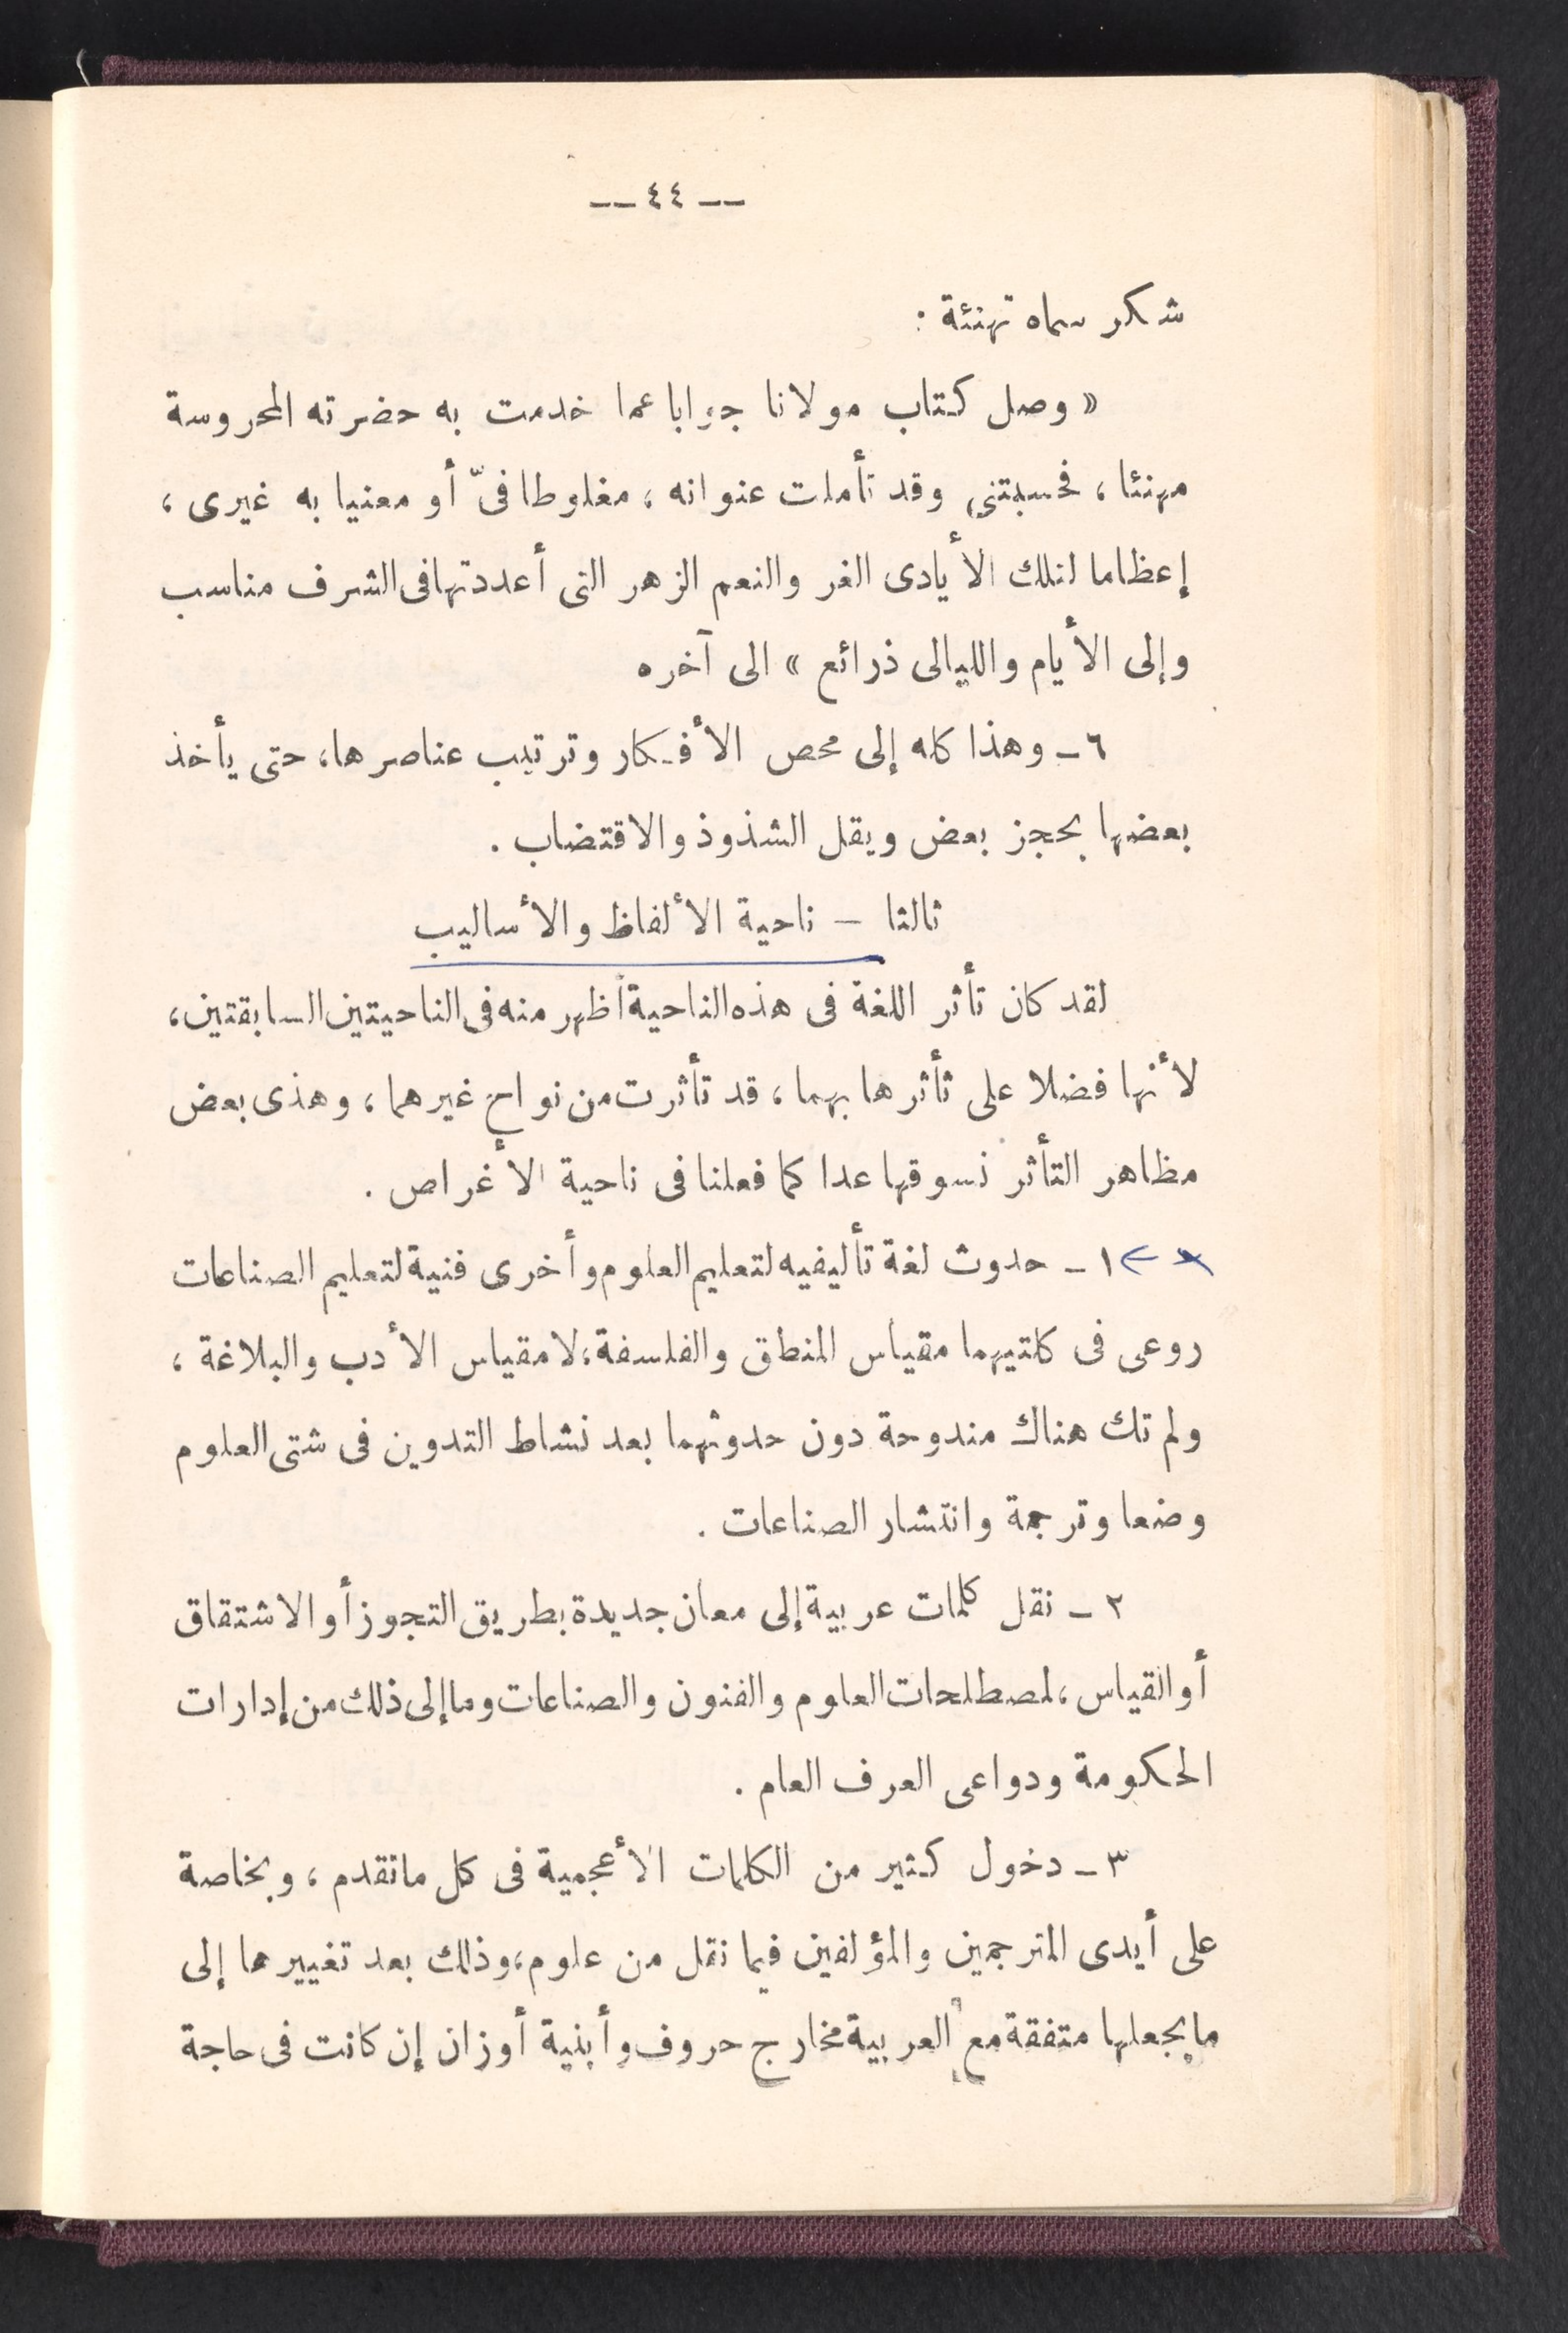 — ٤٤ —
شكر سماه تهنئة :
« وصل كتاب مولانا جوابا عما خدمت به حضرته المحروسة
مهنئا ، فحسبتنى وقد تأملت عنوانه ، مغلوطا فىّ أو معنيا به غيرى ،
إعظاما لتلك الأيادى الغر والنعم الزهر التى أعددتها فى الشرف مناسب
وإلى الأيام والليالى ذرائع » الى آخره
٦ - وهذا كله إلى محص الأفكار وترتيب عناصرها، حتى يأخذ
بعضها بحجز بعض ويقل الشذوذ والاقتضاب .
ثالثا - ناحية الألفاظ والأساليب
لقد كان تأثر اللغة فى هذه الناحية أظهر منه فى الناحيتين السابقتين،
لأنها فضلا على تأثرها بهما ، قد تأثرت من نواح غيرهما ، وهذى بعض
مظاهر التأثر نسوقها عدا كما فعلنا فى ناحية الأغراض .
١ - حدوث لغة تأليفيه لتعليم العلوم وأخرى فنية لتعليم الصناعات
روعى فى كلتيهما مقياس المنطق والفلسفة، لا مقياس الأدب والبلاغة ،
ولم تك هناك مندوحة دون حدوثهما بعد نشاط التدوين فى شتى العلوم
وضعا وترجمة وانتشار الصناعات .
٢ - نقل كلمات عربية إلى معان جديدة بطريق التجوز أو الاشتقاق
أو القياس ، لمصطلحات العلوم والفنون والصناعات وما إلى ذلك من إدارات
الحكومة ودواعى العرف العام .
٣ - دخول كثير من الكلمات الأعجمية فى كل ماتقدم ، وبخاصة
على أيدى المترجمين والمؤلفين فيما نقل من علوم، وذلك بعد تغييرها إلى
مايجعلها متفقة مع العربية مخارج حروف وأبنية أوزان إن كانت فى حاجة